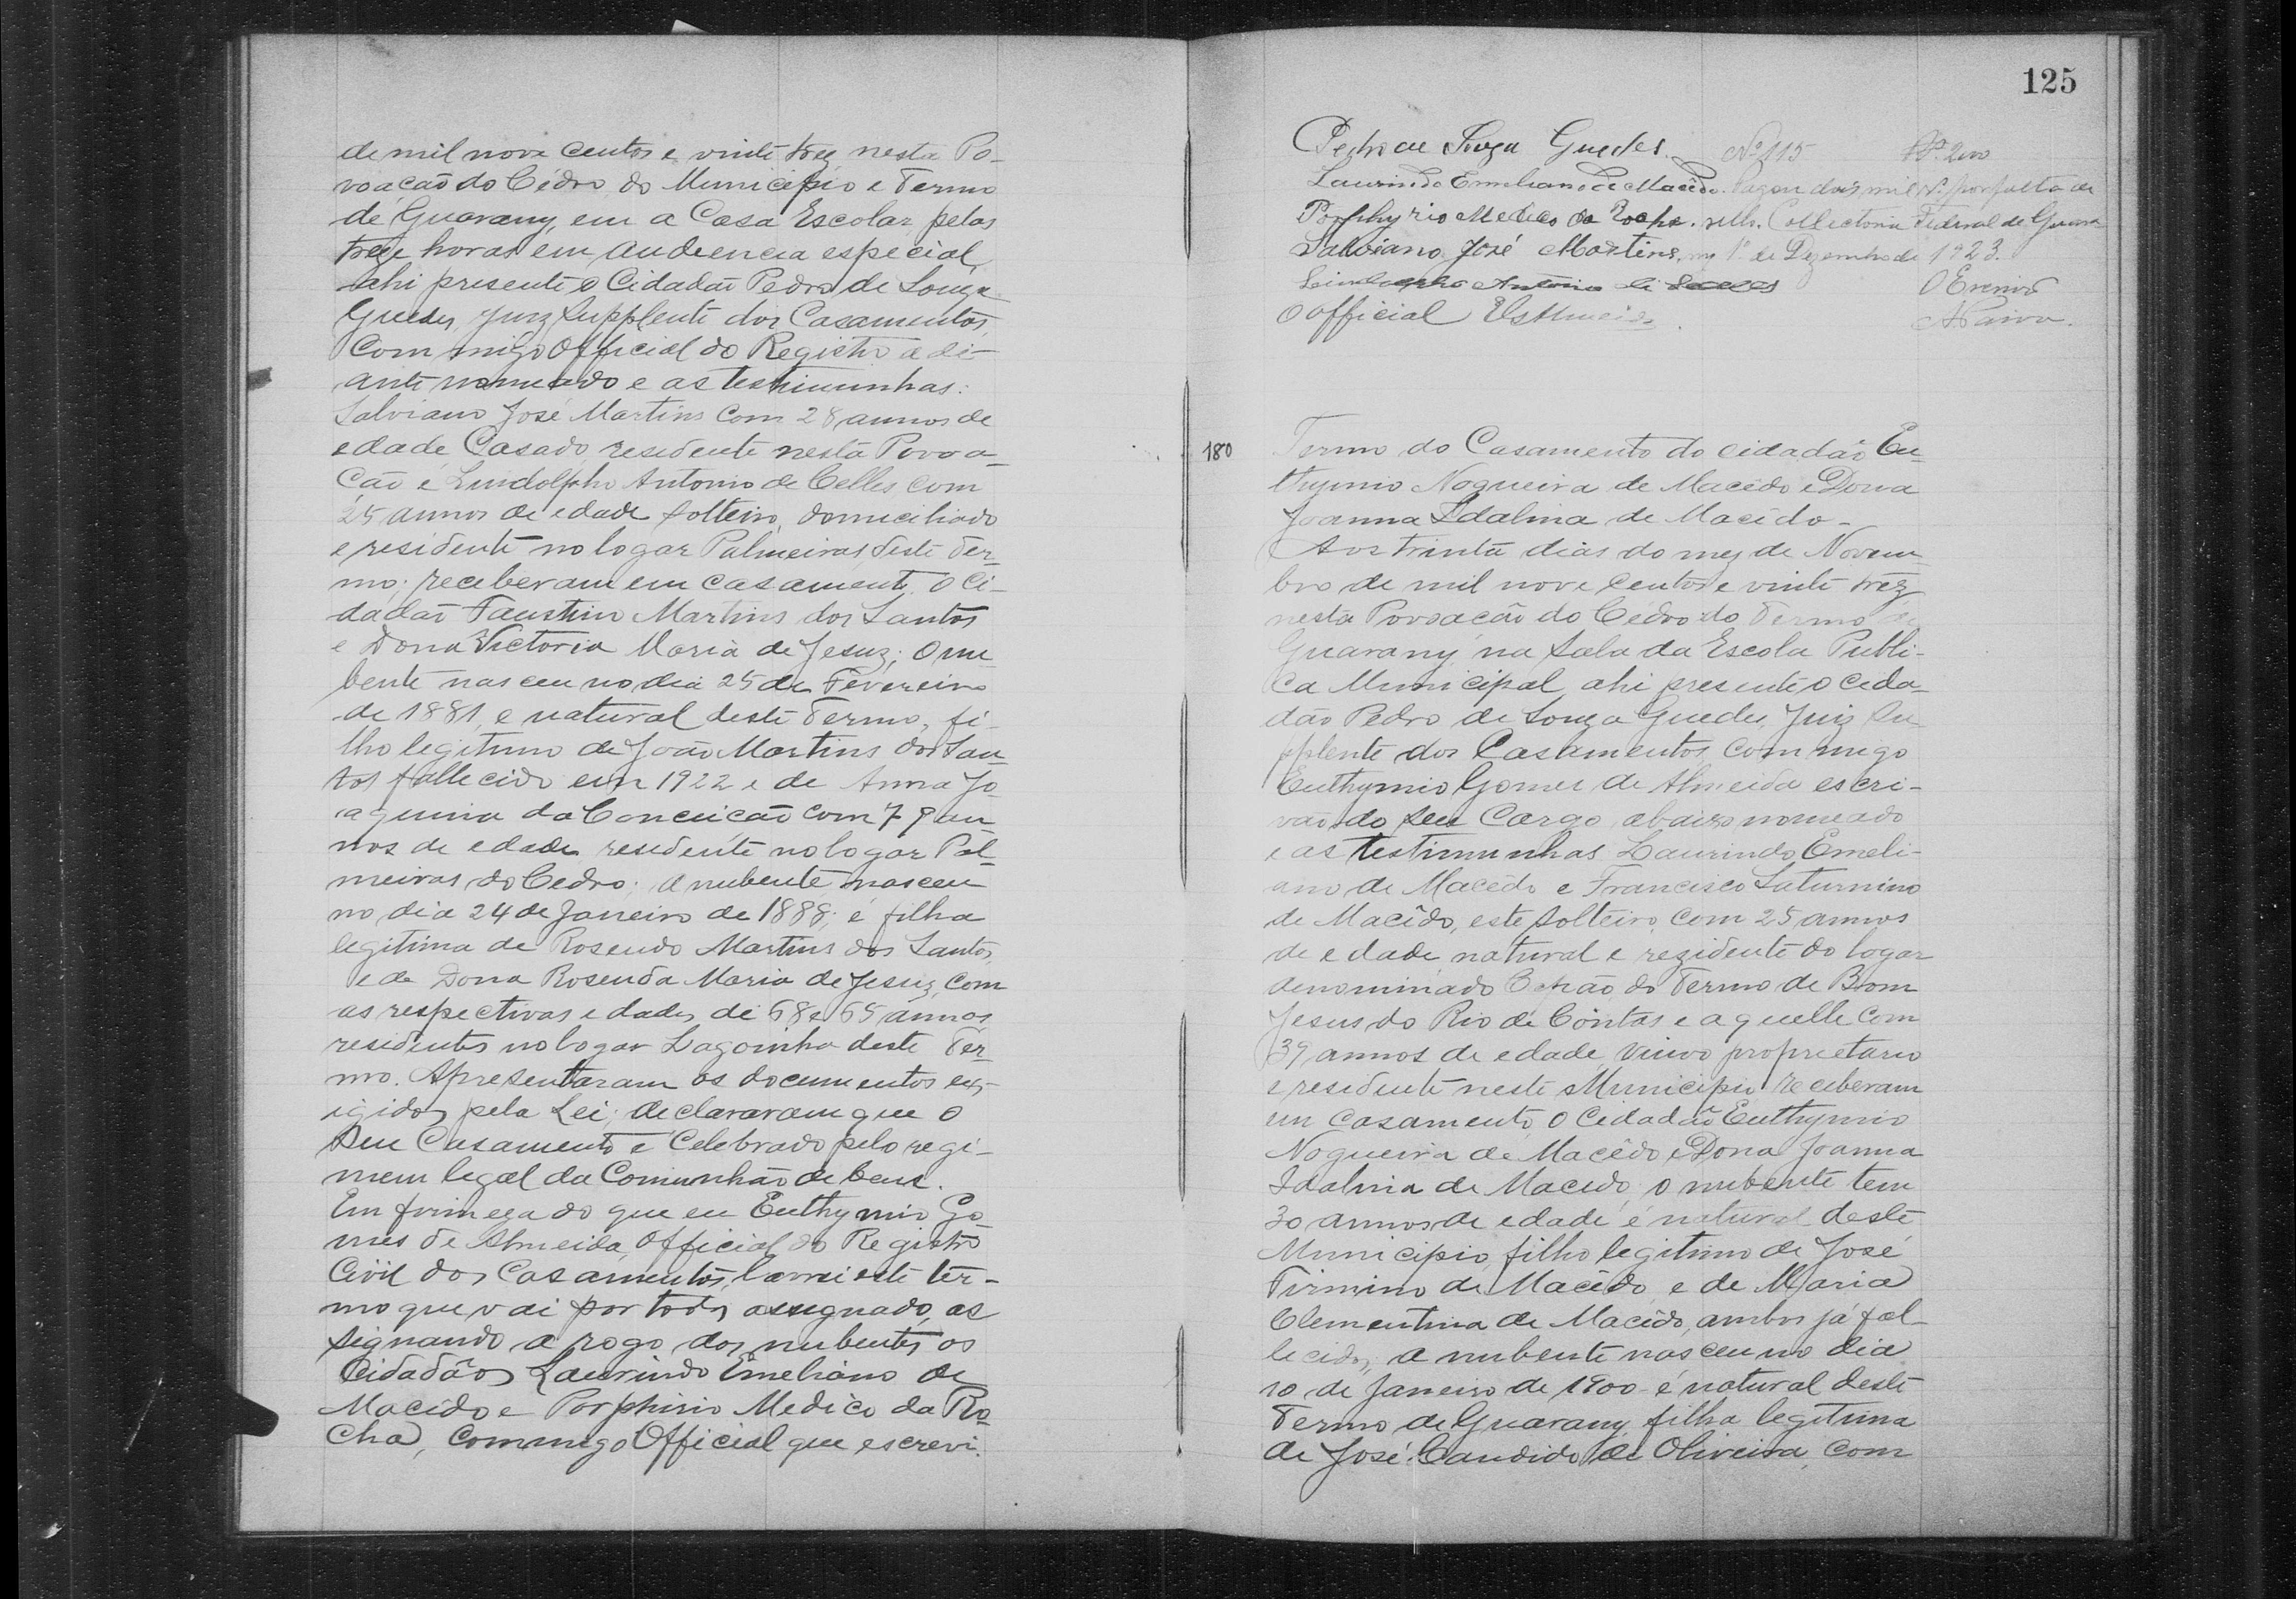 de mil nove centos e vinte trez nesta Po-
voação do Cédro do Municipio e Termo
de Guarany, em a Casa Escolar pelas
treze horas em audiencia especial
ahi presente o Cidadão Pedro de Souza
Guedes, Juiz Supplente dos Casamentos,
Commigo Official do Registro a di-
ante nomeado e as testimunhas:
Salviano José Martins com 28 annos de
edade Casado residente nesta Povoa-
ção e Lindolpho Antonio de Celles com
25 annos de edade solteiro, domiciliado
e residente no logar Palmeiras deste Ter-
mo; receberam em casamento o Ci-
dadão Faustino Martins dos Santos
e Dona Victoria Maria de Jesuz; O nu-
bente nasceu no dia 25 de Fevereiro
de 1881, e natural deste Termo, fi-
lho legitimo de João Martins dos San-
tos fallecido em 1922 e de Anna Jo-
aquina da Conceicão com 79 an-
nos de edade residente no logar Pal-
meiras do Cedro; a nubente nasceu
no dia 24 de Janeiro de 1888; é filha
legitima de Rosendo Martins dos Santos,
e de Dona Rosenda Maria de Jesuz, com
as respectivas edades de 68 e 65 annos
residentes no logar Lagoinha deste Ter-
mo. Apresentaram os documentos ex-
igidos pela Lei; declararam que o
seu Casamento é Celebrado pelo regi-
mem legal da Comunhão de bens.
Em firmeza do que eu Euthymio Go-
mes de Almeida, Official do Registro
Civil dos Casamentos, lavrei este ter-
mo que vai por todos assignado, as
signando a rogo dos nubentes os
Cidadãos Laurindo Emeliano de
Macêdo e Porphirio Medico da Ro-
cha, commigo Official que escrevi.
125
Pedro de Souza Guedes. Nº 115 2000
Laurindo Emeliano de Macêdo. Pagou dois mil rs. por falta de
Porphyrio Medico da Rocha. sello. Collectoria Federal de Guara
Salviano José Martins. ny 1º de Dezembro de 1923.
Lindolpho Antonio de Celles O Escrivão
O official EGAlmeida. Paiva.
180 Termo do Casamento do cidadão Eu-
thymio Nogueira de Macêdo e Dona
Joanna Idalina de Macêdo-
Aos trinta dias do mez de Novem-
bro de mil nove centos e vinte trêz
nesta Povoacão do Cédro do Termo de
Guarany, na Sala da Escola Publi-
ca Municipal, ahi presente o cida-
dão Pedro de Souza Guedes, Juiz Su-
pplente dos Casamentos, commigo
Euthymio Gomes de Almeida escri-
vão do seu Cargo abaixo nomeado
e as testimunhas Laurindo Emeli-
ano de Macêdo e Francisco Saturnino
de Macêdo, este solteiro, com 25 annos
de edade natural e rezidente do logar
denominado do Termo de Bom
Jesus do Rio de Côntas e aquelle com
39 annos de edade viuvo proprietario
e residente neste Municipio receberam
em casamento, o Cidadão Euthymio
Nogueira de Macêdo e Dona Joanna
Idalina de Macêdo; o nubente tem
30 annos de edade é natural deste
Municipio, filho legitimo de José
Firmino de Macêdo e de Maria
Clementina de Macêdo, ambos já fal-
lecidos; a nubente nasceu no dia
10 de Janeiro de 1900 é natural deste
Termo de Guarany, filha legitima
de José Candido de Oliveira, com